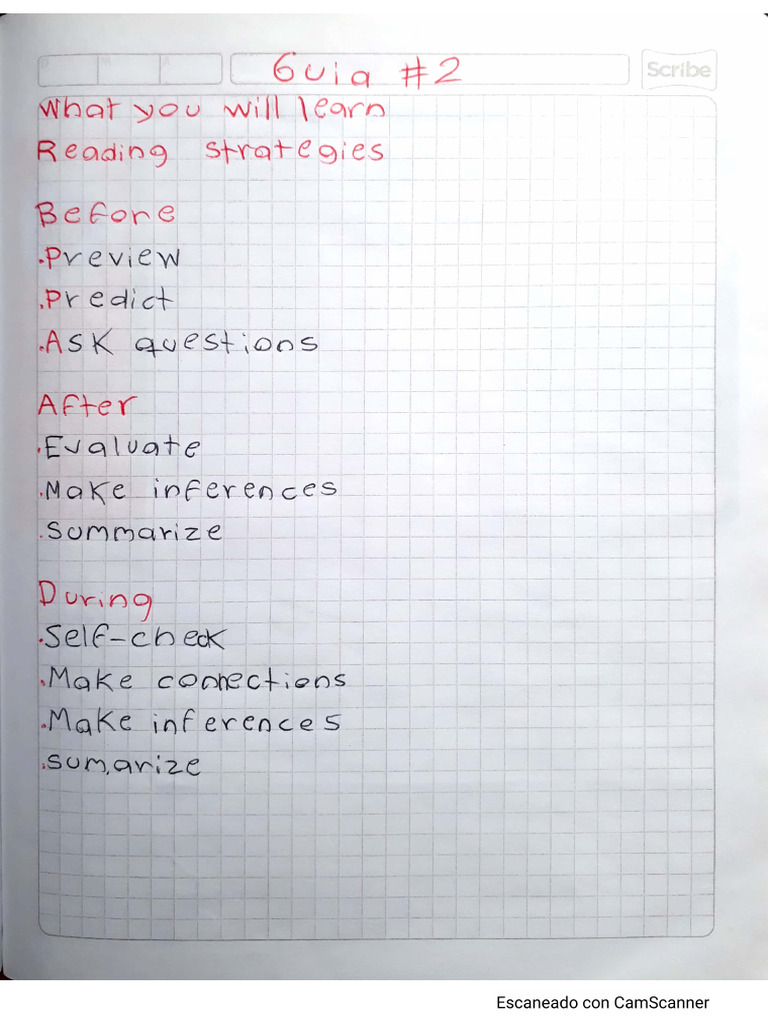 Guia #2
Scribe
What you will learn
Reading strategies
Before
.Preview
.Predict
.Ask questions
After
.Evaluate
.Make inferences
.Summarize
During
.Self-check
.Make connections
.Make inferences
.sum,arize
Escaneado con CamScanner